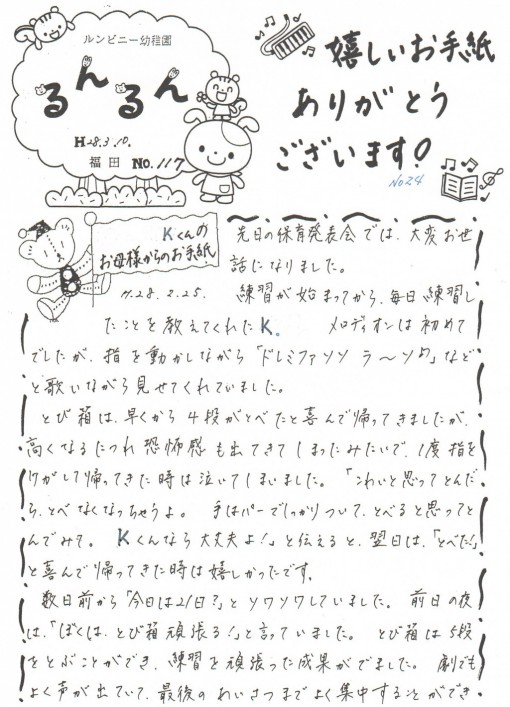 ルンビニー幼稚園
るんるん
H28.3.10.
福田 No.117
嬉しいお手紙
ありがとう
ございます!
No24
Kくんの
お母様からのお手紙
先日の保育発表会では、大変お世
話になりました。
H.28.2.25. 練習が始まってから、毎日練習し
たことを教えてくれたK. メロディオンは初めて
でしたが、指を動かしながら「ドレミファソソ ラ〜ソ
と歌いながら見せてくれていました。
とび箱は、早くから4段がとべたと喜んで帰ってきましたが、
高くなるにつれ恐怖感も出てきてしまったみたいで、1度指を
けがして帰ってきた時は泣いてしまいました。「こわいと思ってとんだ
ら、とべなくなっちゃうよ。 手はパーでしっかりついて、とべると思ってと
んでみて。 Kくんなら大丈夫よ!」と伝えると、翌日は、「とべた!」
と喜んで帰ってきた時は嬉しかったです。
数日前から「今日は21日?」とソワソワしていました。 前日の夜
は、「ぼくは、とび箱頑張る!」と言っていました。 とび箱は5段
をとぶことができ、練習を頑張った成果がでました。 劇でも
よく声が出ていて、最後のあいさつまでよく集中することができ